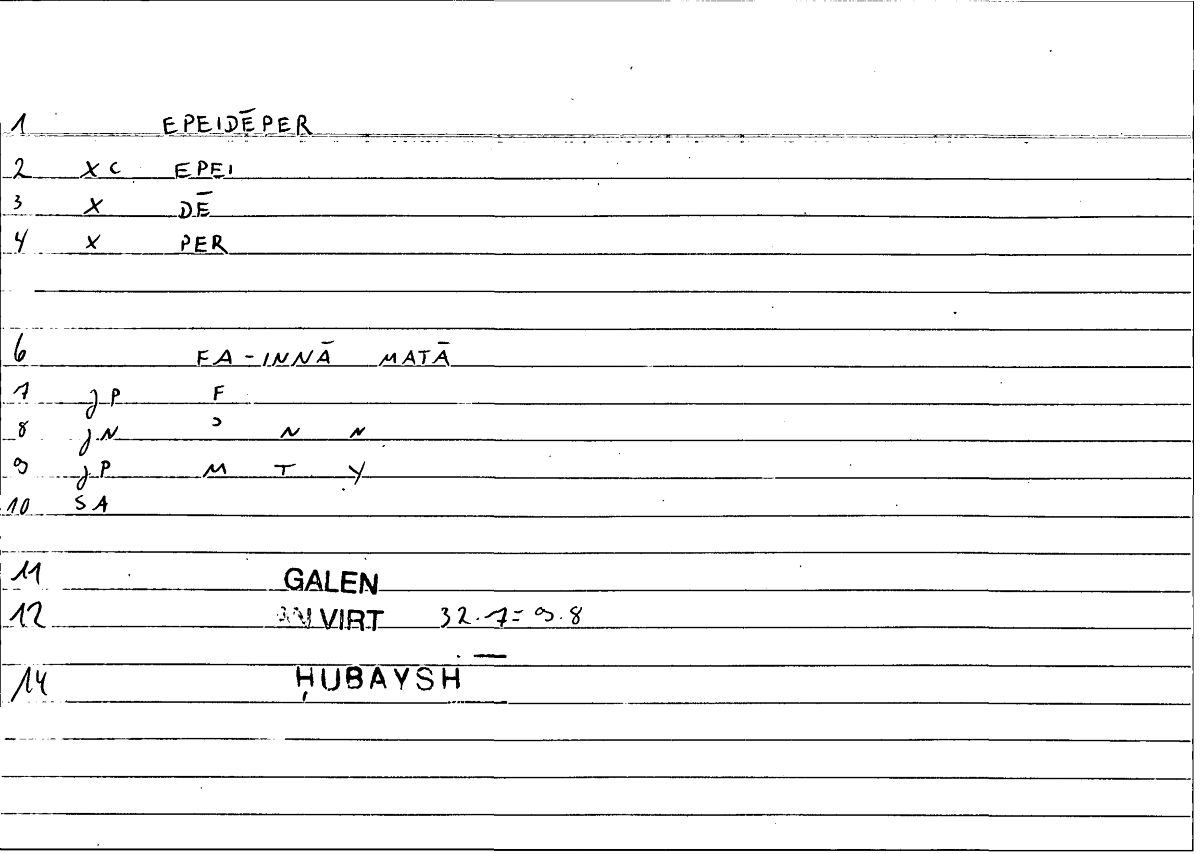 1 EPEIDĒPER
2 XC EPEI
3 X DĒ
4 X PER
6 FA-INNĀ MATĀ
7 JP F
8 JN ʾ N N
9 JP M T Y
10 SA
11 GALEN
12 AN VIRT 32.7=9.8
14 ḤUBAYSH